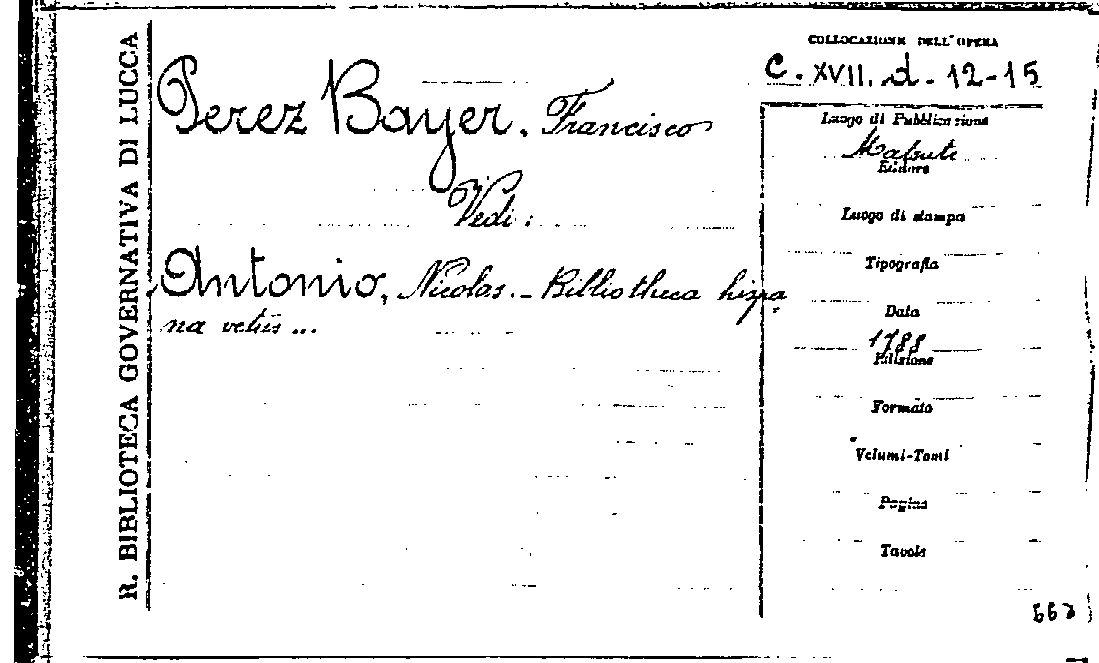 R. BIBLIOTECA GOVERNATIVA DI LUCCA
COLLOCAZIONE DELL'OPERA
C. XVII. d. 12-15
Perez Bayer, Francisco
Vedi:
Antonio, Nicolas. - Bibliotheca hispa
na vetus ...
Luogo di Pubblicazione
Editore
Luogo di stampa
Tipografia
Data
1788
Edizione
Formato
Volumi-Tomi
Pagine
Tavole